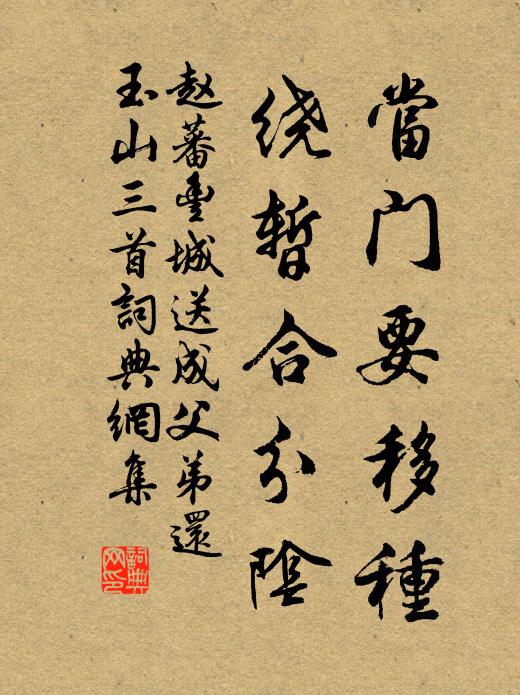 當门要移種
绕暫合分陰
赵蕃豊城送成父弟還
玉山三首詞典網集
詞典
网印